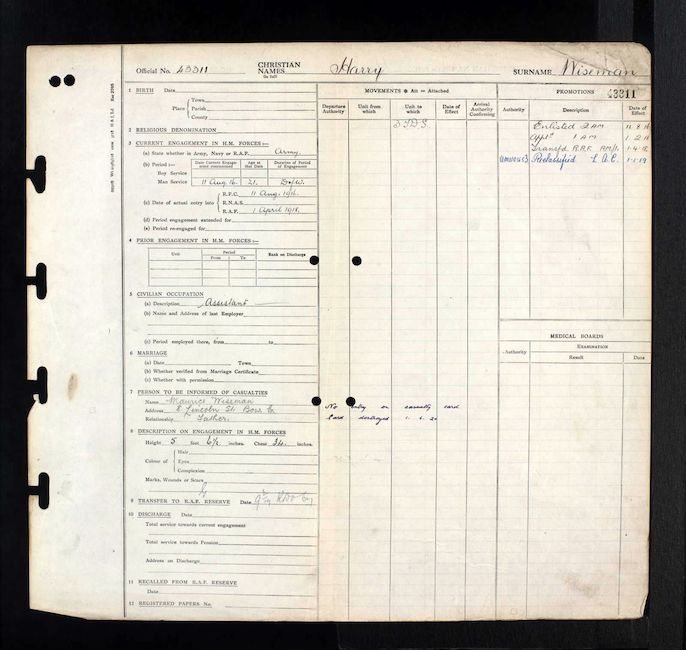 Official No. 43311 CHRISTIAN NAMES (in full) Harry SURNAME Wiseman
1 BIRTH Date
Place Town
Parish
County
2 RELIGIOUS DENOMINATION
3 CURRENT ENGAGEMENT IN H.M. FORCES:—
(a) State whether in Army, Navy or R.A.F. Army.
(b) Period:— Date Current Engagement commenced Age at that Date Duration of Period of Engagement
Boy Service
Man Service 11 Aug. 16. 21. D of W.
(c) Date of actual entry into R.F.C. 11 Aug. 1916.
R.N.A.S.
R.A.F. 1 April 1918.
(d) Period engagement extended for
(e) Period re-engaged for
4 PRIOR ENGAGEMENT IN H.M. FORCES:—
Unit Period From To Rank on Discharge
5 CIVILIAN OCCUPATION
(a) Description Assistant
(b) Name and Address of last Employer
(c) Period employed there, from to
6 MARRIAGE
(a) Date Town
(b) Whether verified from Marriage Certificate
(c) Whether with permission
7 PERSON TO BE INFORMED OF CASUALTIES
Name Maurice Wiseman
Address 8 Lincoln St. Bow E.
Relationship Father.
8 DESCRIPTION ON ENGAGEMENT IN H.M. FORCES
Height 5 feet 6½ inches. Chest 34 inches.
Colour of Hair
Eyes
Complexion
Marks, Wounds or Scars
9 TRANSFER TO R.A.F. RESERVE Date
10 DISCHARGE Date
Total service towards current engagement
Total service towards Pension
Address on Discharge
11 RECALLED FROM R.A.F. RESERVE
Date
12 REGISTERED PAPERS No.
MOVEMENTS Att = Attached
Departure Authority Unit from which Unit to which Date of Effect Arrival Authority Confirming
No entry on casualty card
Card destroyed 1. 6. 20
PROMOTIONS 43311
Authority Description Date of Effect
Enlisted 2 AM 11 8 16
Appt. 1 AM
Transfd. R.A.F. AM/1. 1-4-18
Reclassified L.A.C. 1-1-19
MEDICAL BOARDS
Authority EXAMINATION
Result Date